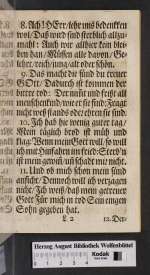 8. Ach! HErr/ lehre uns bedencken
wol/ Daß wird sind sterblich allzu-
mahl: Auch wir allhier kein blei-
ben han/ Müssen alle davon/ Ge-
lehrt/ reich/ jung/ alt oder schön.
9. Das macht die sünd du treuer
GOtt/ Dadurch ist kommen der
bitter tod: Der nimt und frißt all
menschenkind/ wie er sie find: Fragt
nicht wes stands oder ehren sie sind.
10. Ich hab hie wenig guter tag/
Mein täglich brod ist müh und
klag: Wenn mein Gott will, so will
ich mit Hinfahren im fried: Sterb'n
ist mein gewiñ/ uñ schadt mir nicht.
11. Und ob mich schon mein sünd
anficht/ Dennoch will ich verzagen
nicht/ Ich weiß/ daß mein getreuer
Gott Für mich in tod Sein eingen
Sohn gegeben hat.
L 2
12. Der-
Herzog August Bibliothek Wolfenbüttel
Kodak